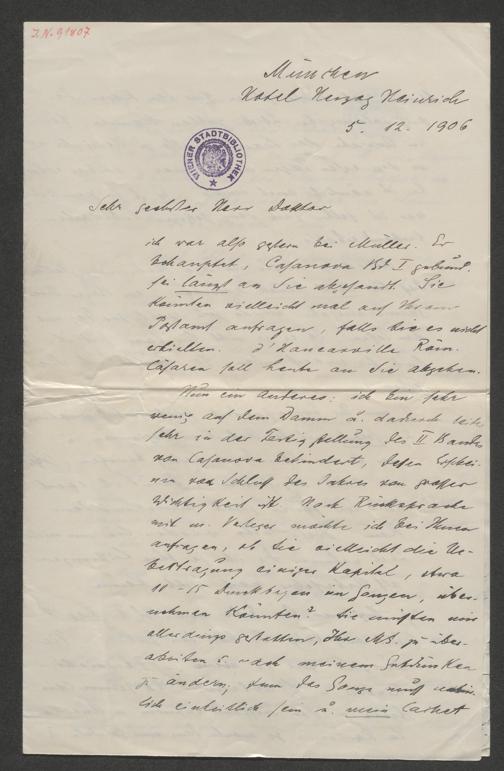 J.N. 91807
München
Hotel Herzog Heinrich
5. 12. 1906
WIENER STADTBIBLIOTHEK
Sehr geehrter Herr Doktor
ich war also gestern bei Müller. Er
behauptet, Casanova Bd I gebund.
sei längst an Sie abgesandt. Sie
könnten vielleicht mal auf Ihrem
Postamt anfragen, falls Sie es nicht
erhielten. d'Hancarville Röm.
Cäsaren soll heute an Sie abgehen.
Nun ein anderes: ich bin sehr
wenig auf dem Damm u. dadurch
sehr in der Fertigstellung des II Bandes
von Casanova behindert, dessen Erschei-
nen vor Schluß des Jahres von grosser
Wichtigkeit ist. Nach Rücksprache
mit m. Verleger möchte ich bei Ihnen
anfragen, ob Sie vielleicht die Ue-
bertragung einiger Kapitel, etwa
10-15 Druckbogen im Ganzen, über-
nehmen könnten? Sie müßten mir
allerdings gestatten, Ihr MS. zu über-
arbeiten u. nach meinem Gutdünken
zu ändern, denn das Ganze muß
lich einheitlich sein u. mein Cachet